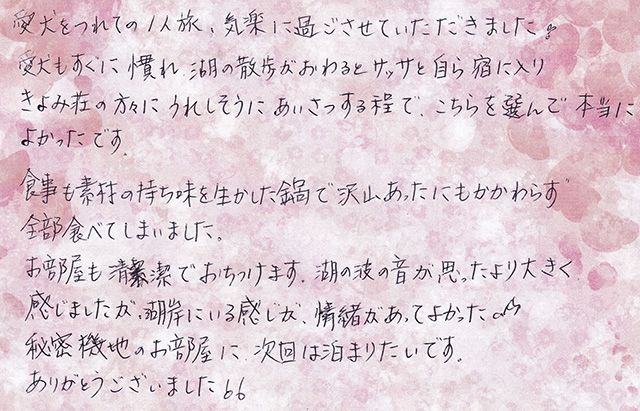 愛犬をつれての1人旅、気楽に過ごさせていただきました。
愛犬もすぐに慣れ、湖の散歩がおわるとサッサと自ら宿に入り
きよみ荘の方々にうれしそうにあいさつする程で、こちらを選んで本当に
よかったです。
食事も素材の持ち味を生かした鍋で沢山あったにもかかわらず
全部食べてしまいました。
お部屋も清潔でおちつけます。湖の波の音が思ったより大きく
感じましたが、湖岸にいる感じが、情緒があってよかった
秘密機地のお部屋に、次回は泊まりたいです。
ありがとうございました